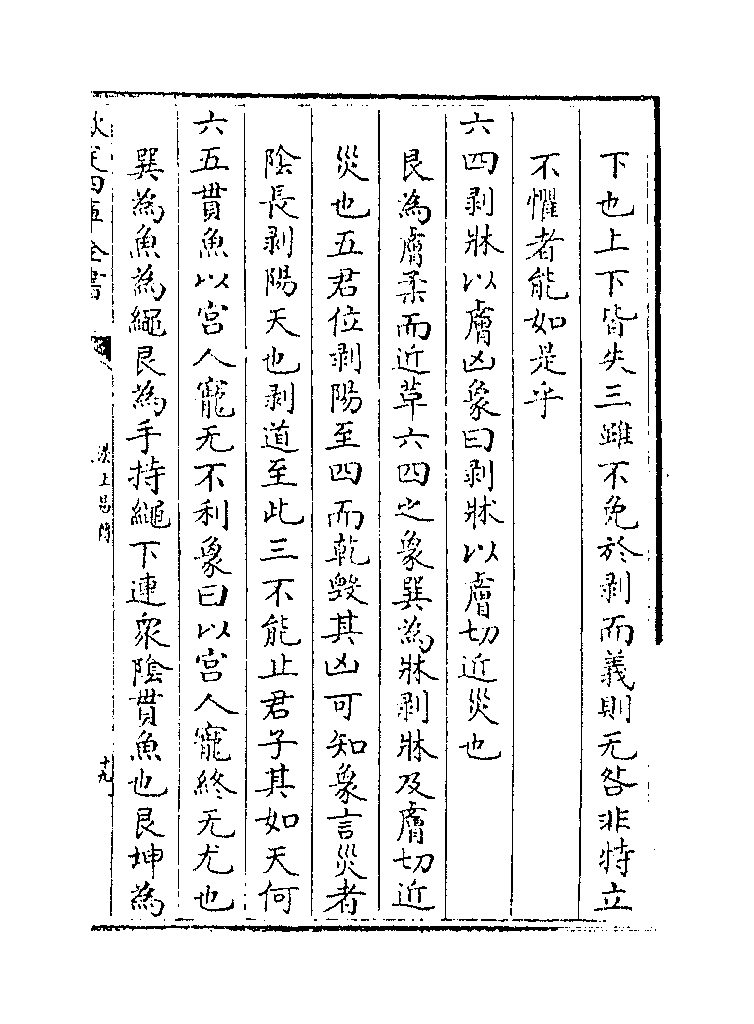 下也上下皆失三雖不免於剥而義則无咎非特立
不懼者能如是乎
六四剥牀以膚凶象曰剥牀以膚切近災也
艮為膚柔而近革六四之象巽為牀剥牀及膚切近
災也五君位剥陽至四而乾毀其凶可知象言災者
陰長剥陽天也剥道至此三不能止君子其如天何
六五貫魚以宫人寵无不利象曰以宫人寵終无尤也
巽為魚為繩艮為手持繩下連衆陰貫魚也艮坤為
欽定四庫全書
漢上易傳
十九